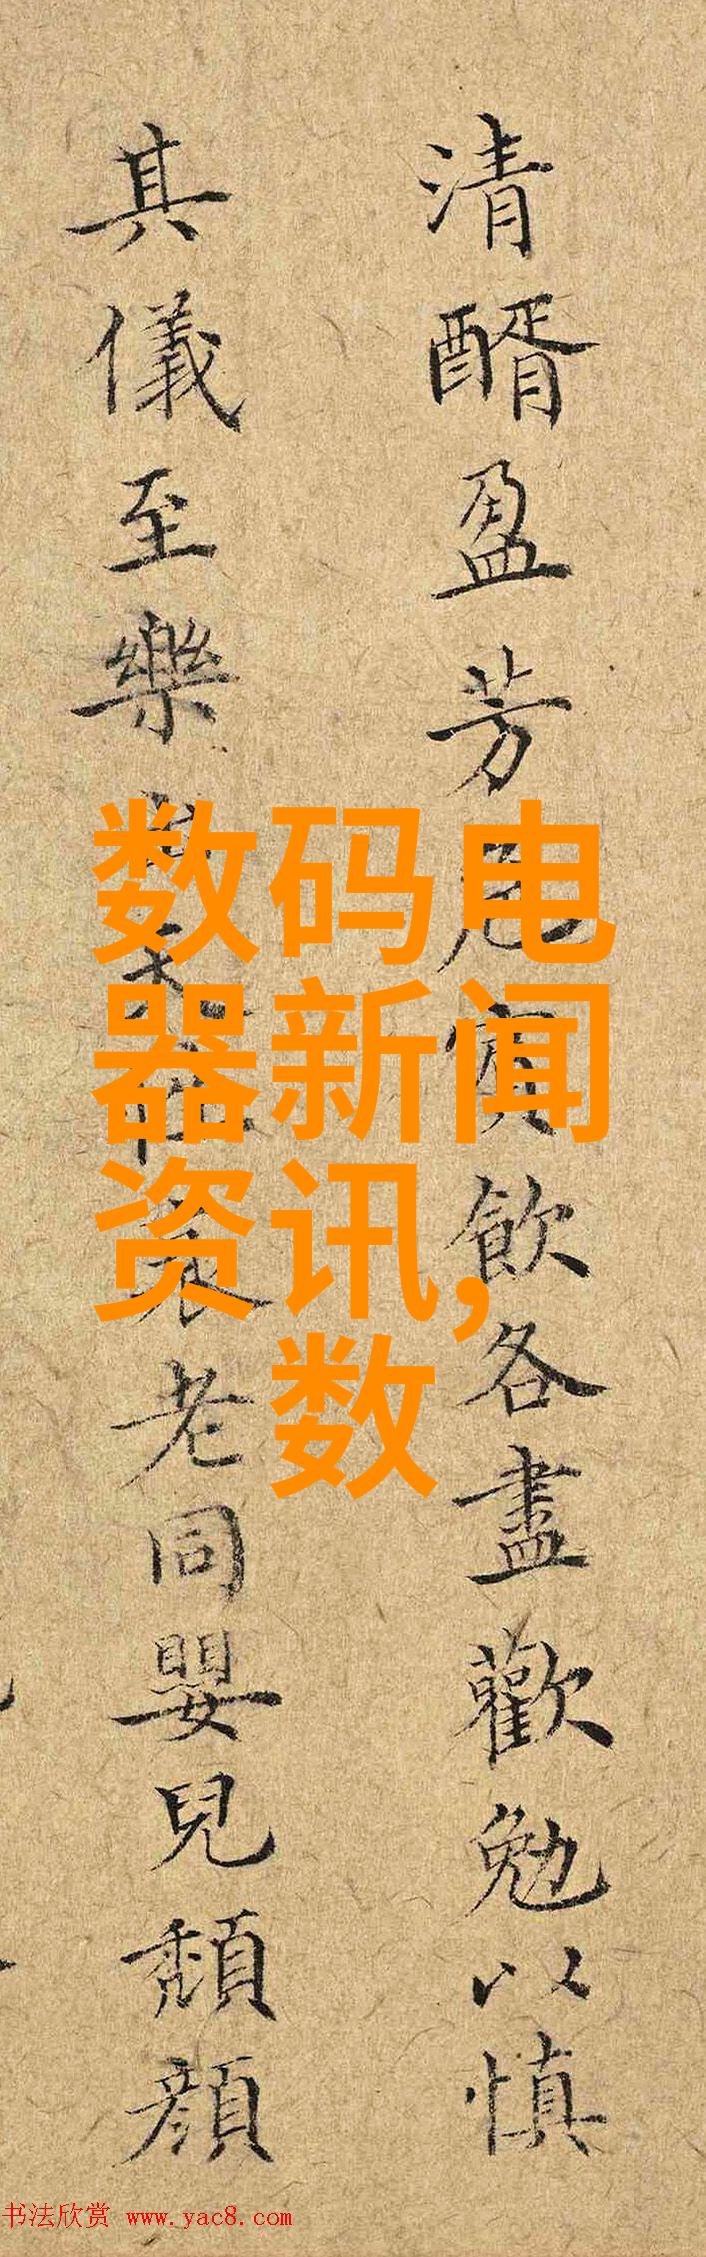 清醑盈芳卮賓飲各盡歡勉以慎
其儀至樂
衰老同嬰兒頹顏
数码电
器新闻
资讯,
数
书法欣赏 www.yac8.com